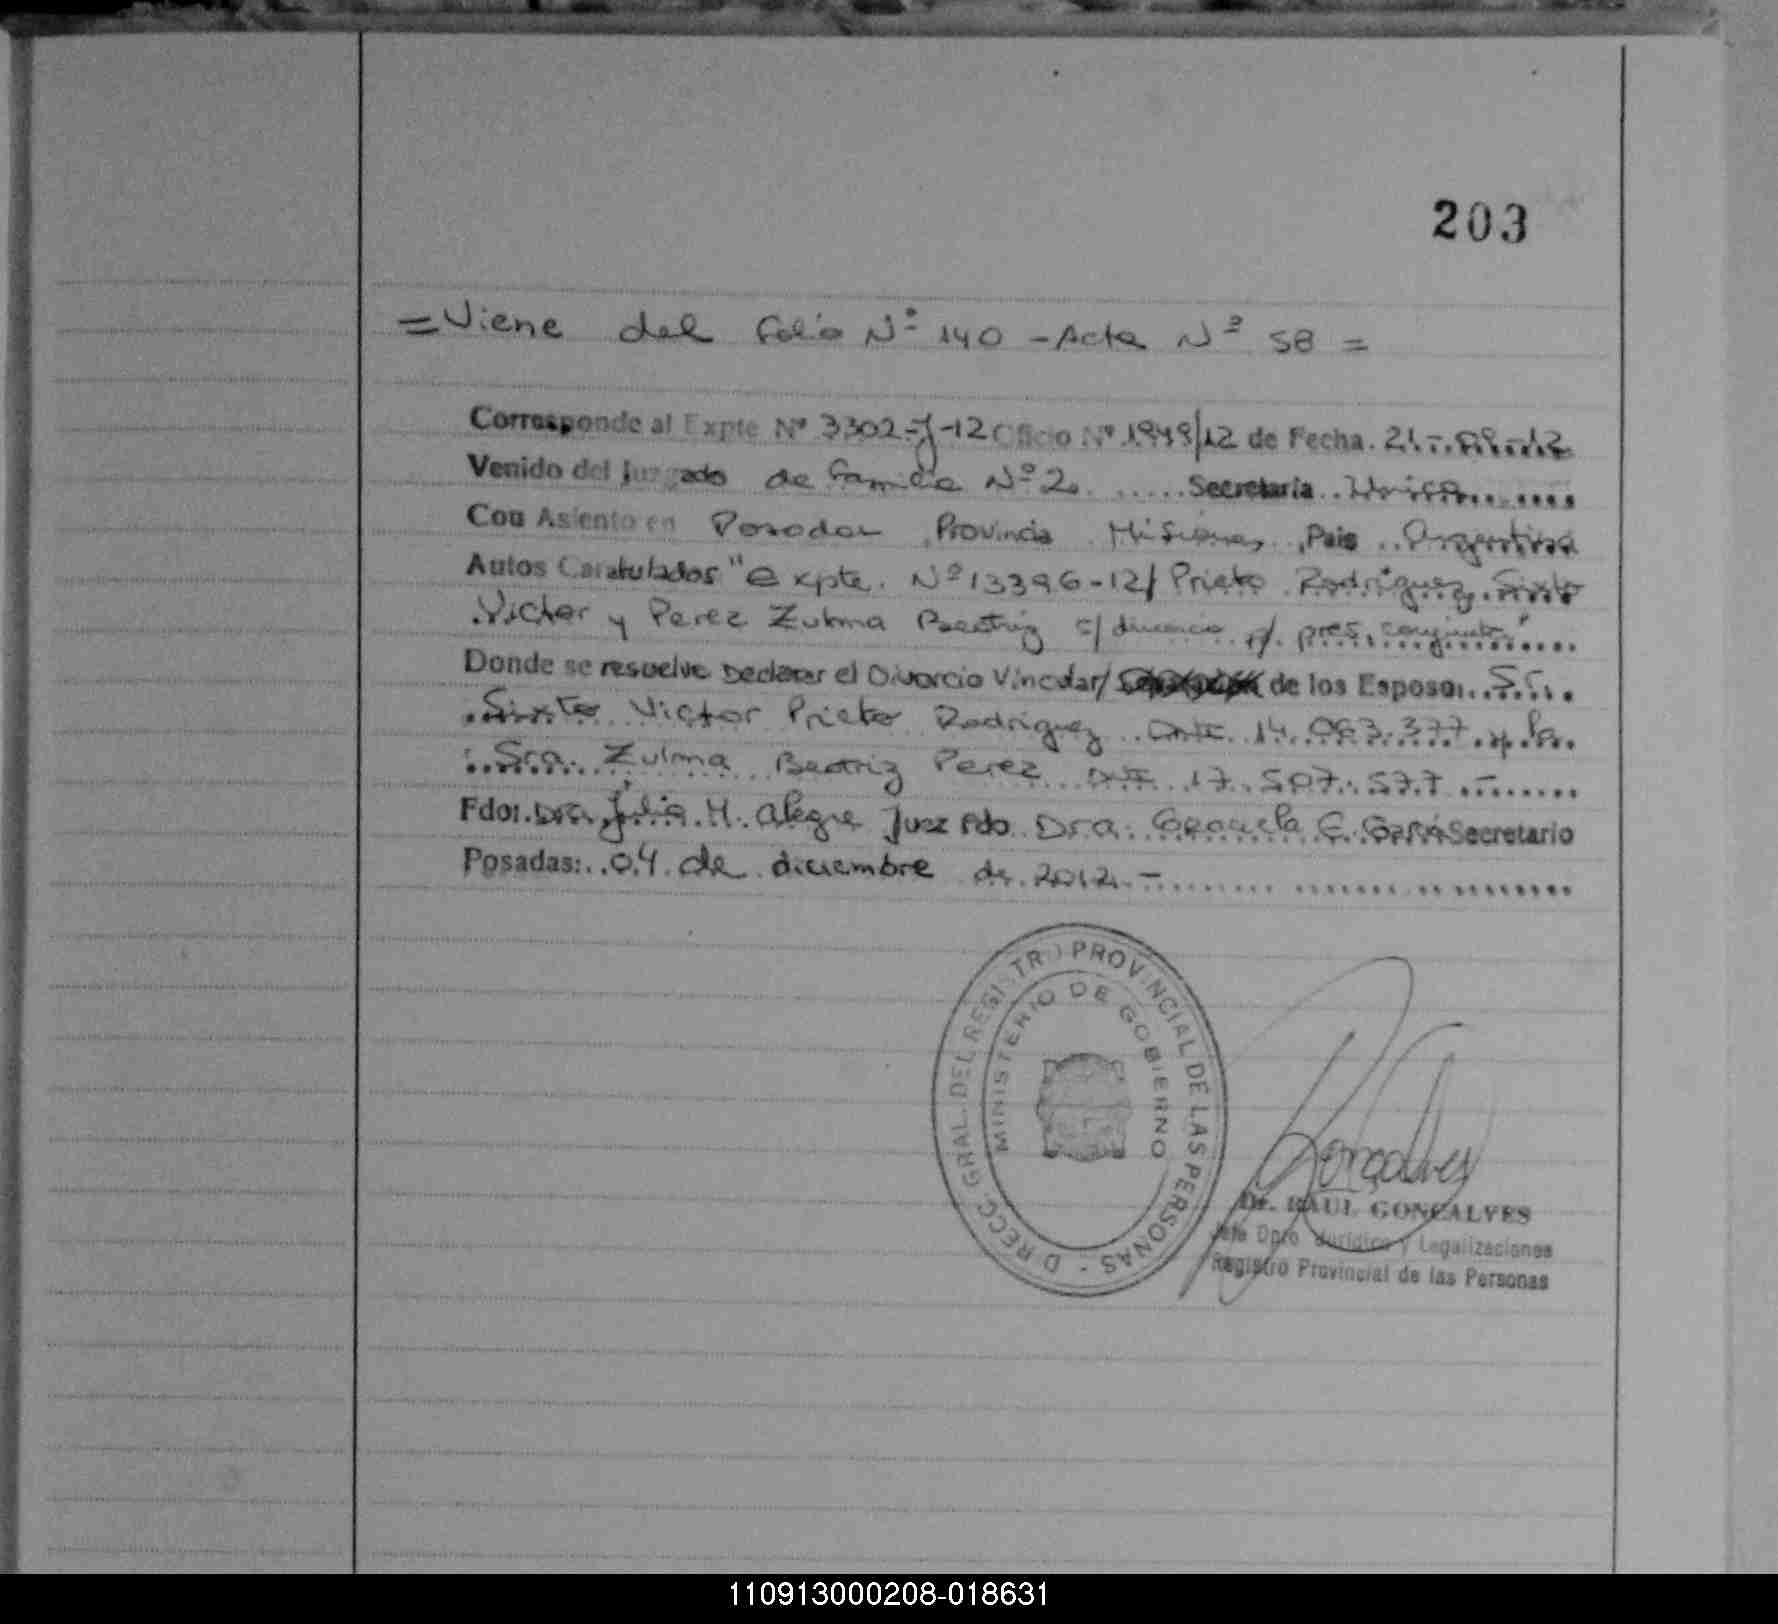 203
=Viene del folio Nº 140 - Acta Nº 58 =
Corresponde al Expte Nº 3302-J-12 Oficio Nº 1949/12 de Fecha. 21-09-12
Venido del Juzgado de Familia Nº 2. ..... Secretaría .. Unica .......
Con Asiento en Posadas Provincia Misiones, Pais .. Argentina
Autos Caratulados "Expte. Nº 13396-12/ Prieto Rodriguez, Sixto
Victor y Perez Zulma Beatriz s/ divorcio p/. pres. conjunta"......
Donde se resuelve Declarar el Divorcio Vincular/ de los Esposo: .. Sr. ..
Sixto Victor Prieto Rodriguez DNI 14.063.377 y la
Sra. Zulma Beatriz Perez DNI 17.507.577 - ........
Fdo: Dra. Julia H. Alegre Juez Fdo. Dra. Graciela C. Secretario
Posadas: .. 04 de diciembre de 2012.- .........
DIRECC. GRAL. DEL REGISTRO PROVINCIAL DE LAS PERSONAS -
MINISTERIO DE GOBIERNO
Gonçalves
Dr. RAUL GONÇALVES
Jefe Dpto. Jurídico y Legalizaciones
Registro Provincial de las Personas
110913000208-018631